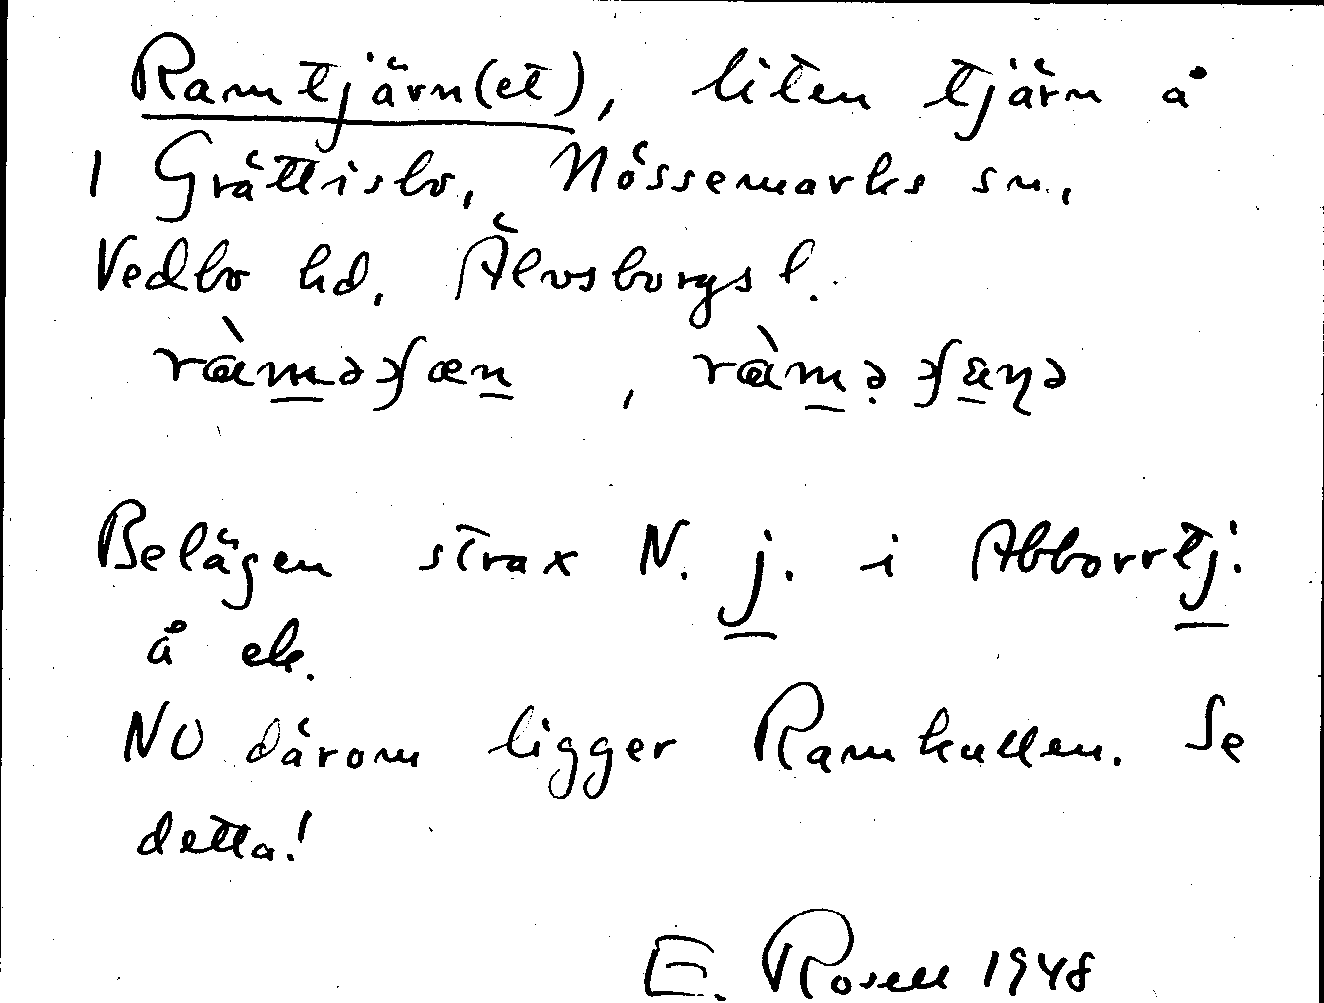 Ramtjärn(et), liten tjärn å
1 Grättisbo, Nössemarks sn.,
Vedbo hd, Älvsborgs l.
Belägen strax N. j. i Abborrtj.
å ek.
NO därom ligger Ramkullen. Se
detta!
E. Rosell 1948